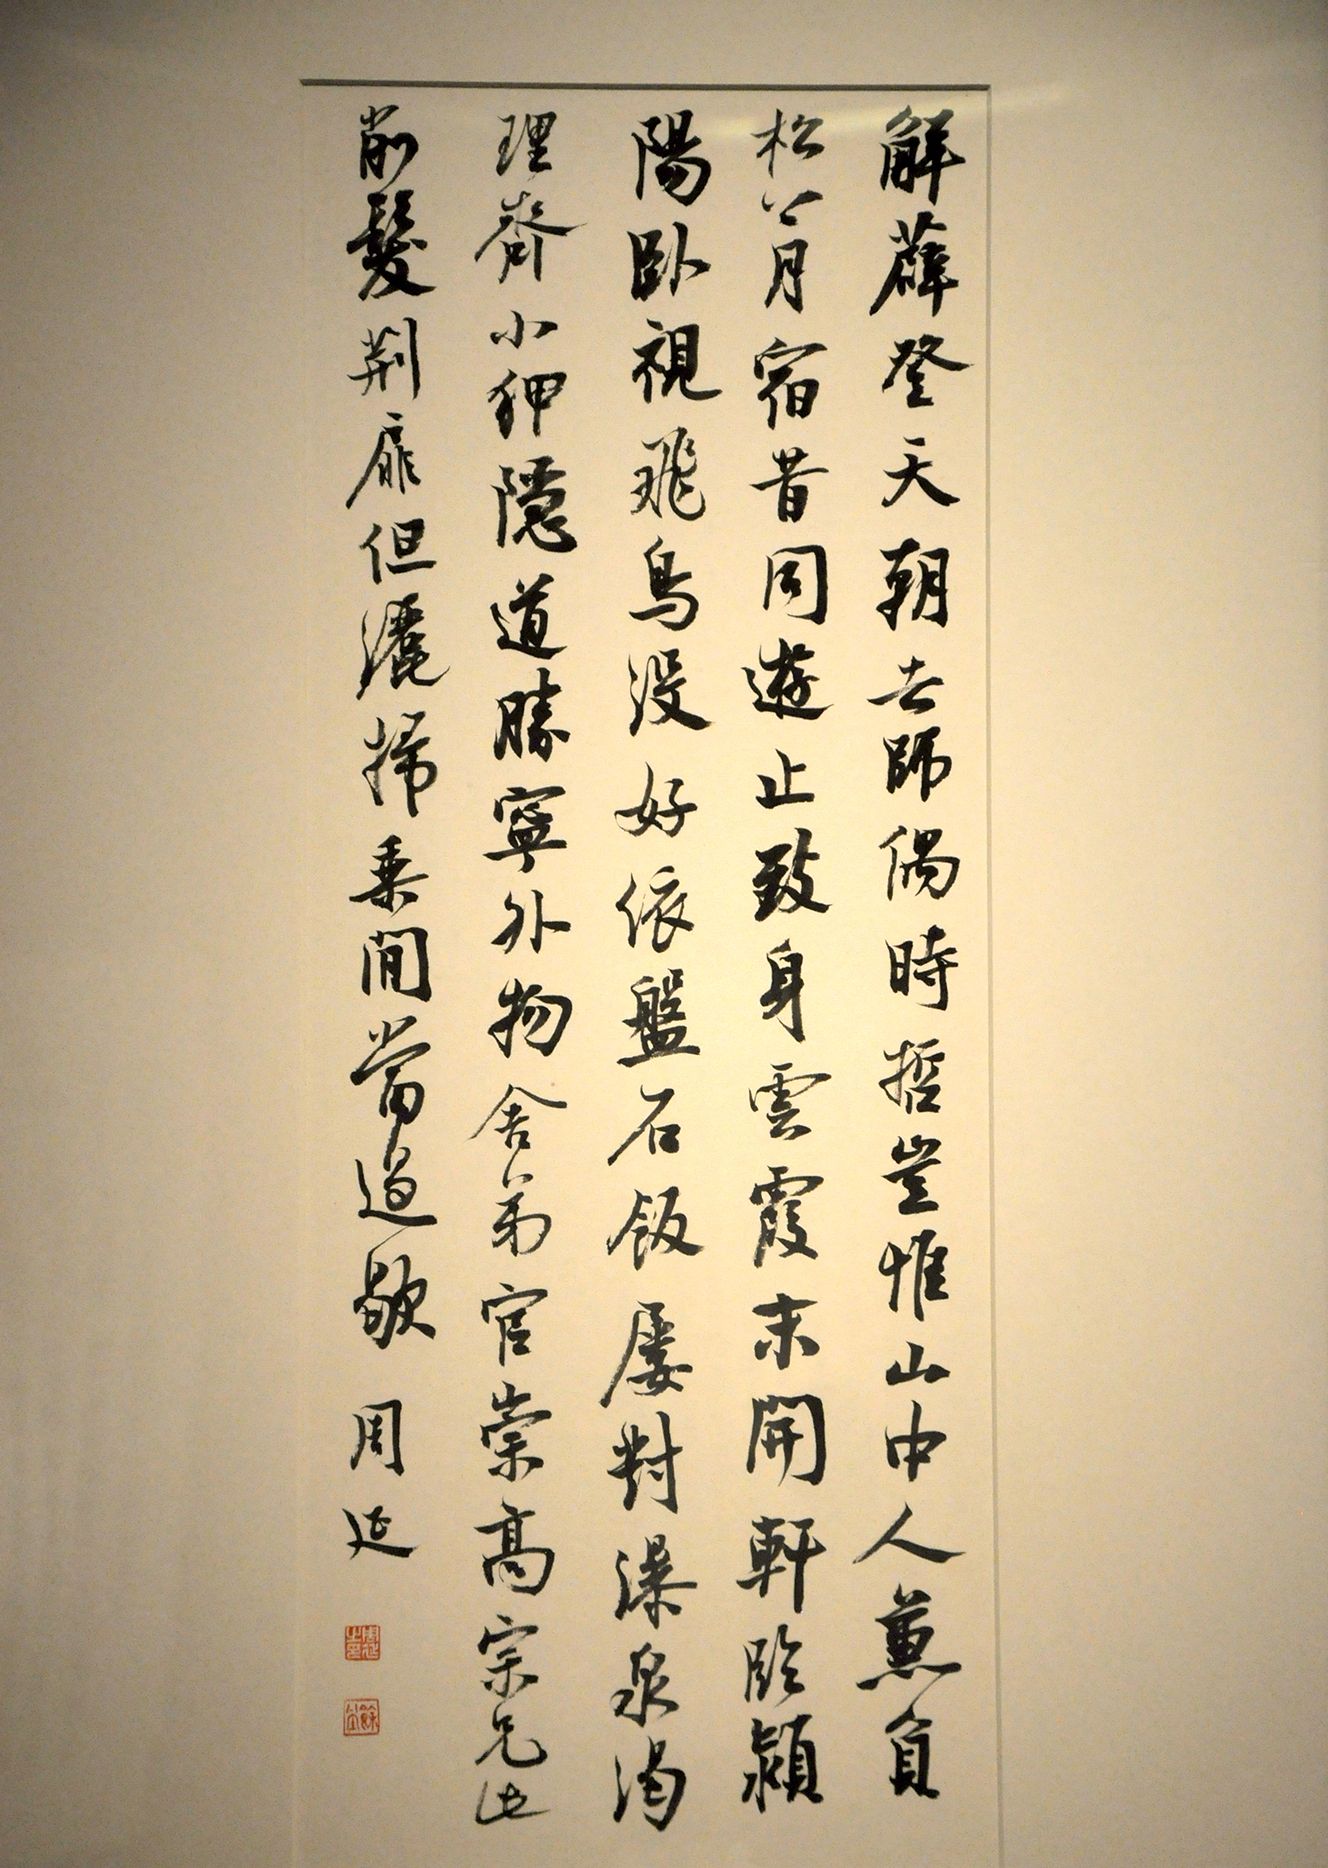 解薜登天朝去師偶時哲豈惟山中人兼負
松上月宿昔同遊止致身雲霞末開軒臨潁
陽臥視飛鳥沒好依盤石飯屢對瀑泉渴
理齊小狎隱道勝寧外物舍弟官崇高宗兄此
削髮荊扉但灑掃乘間當過歇 周延